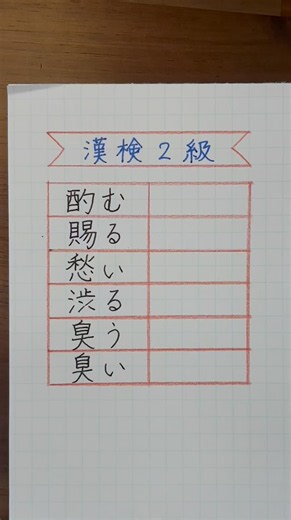 漢検2級
酌む
賜る
愁い
渋る
臭う
臭い